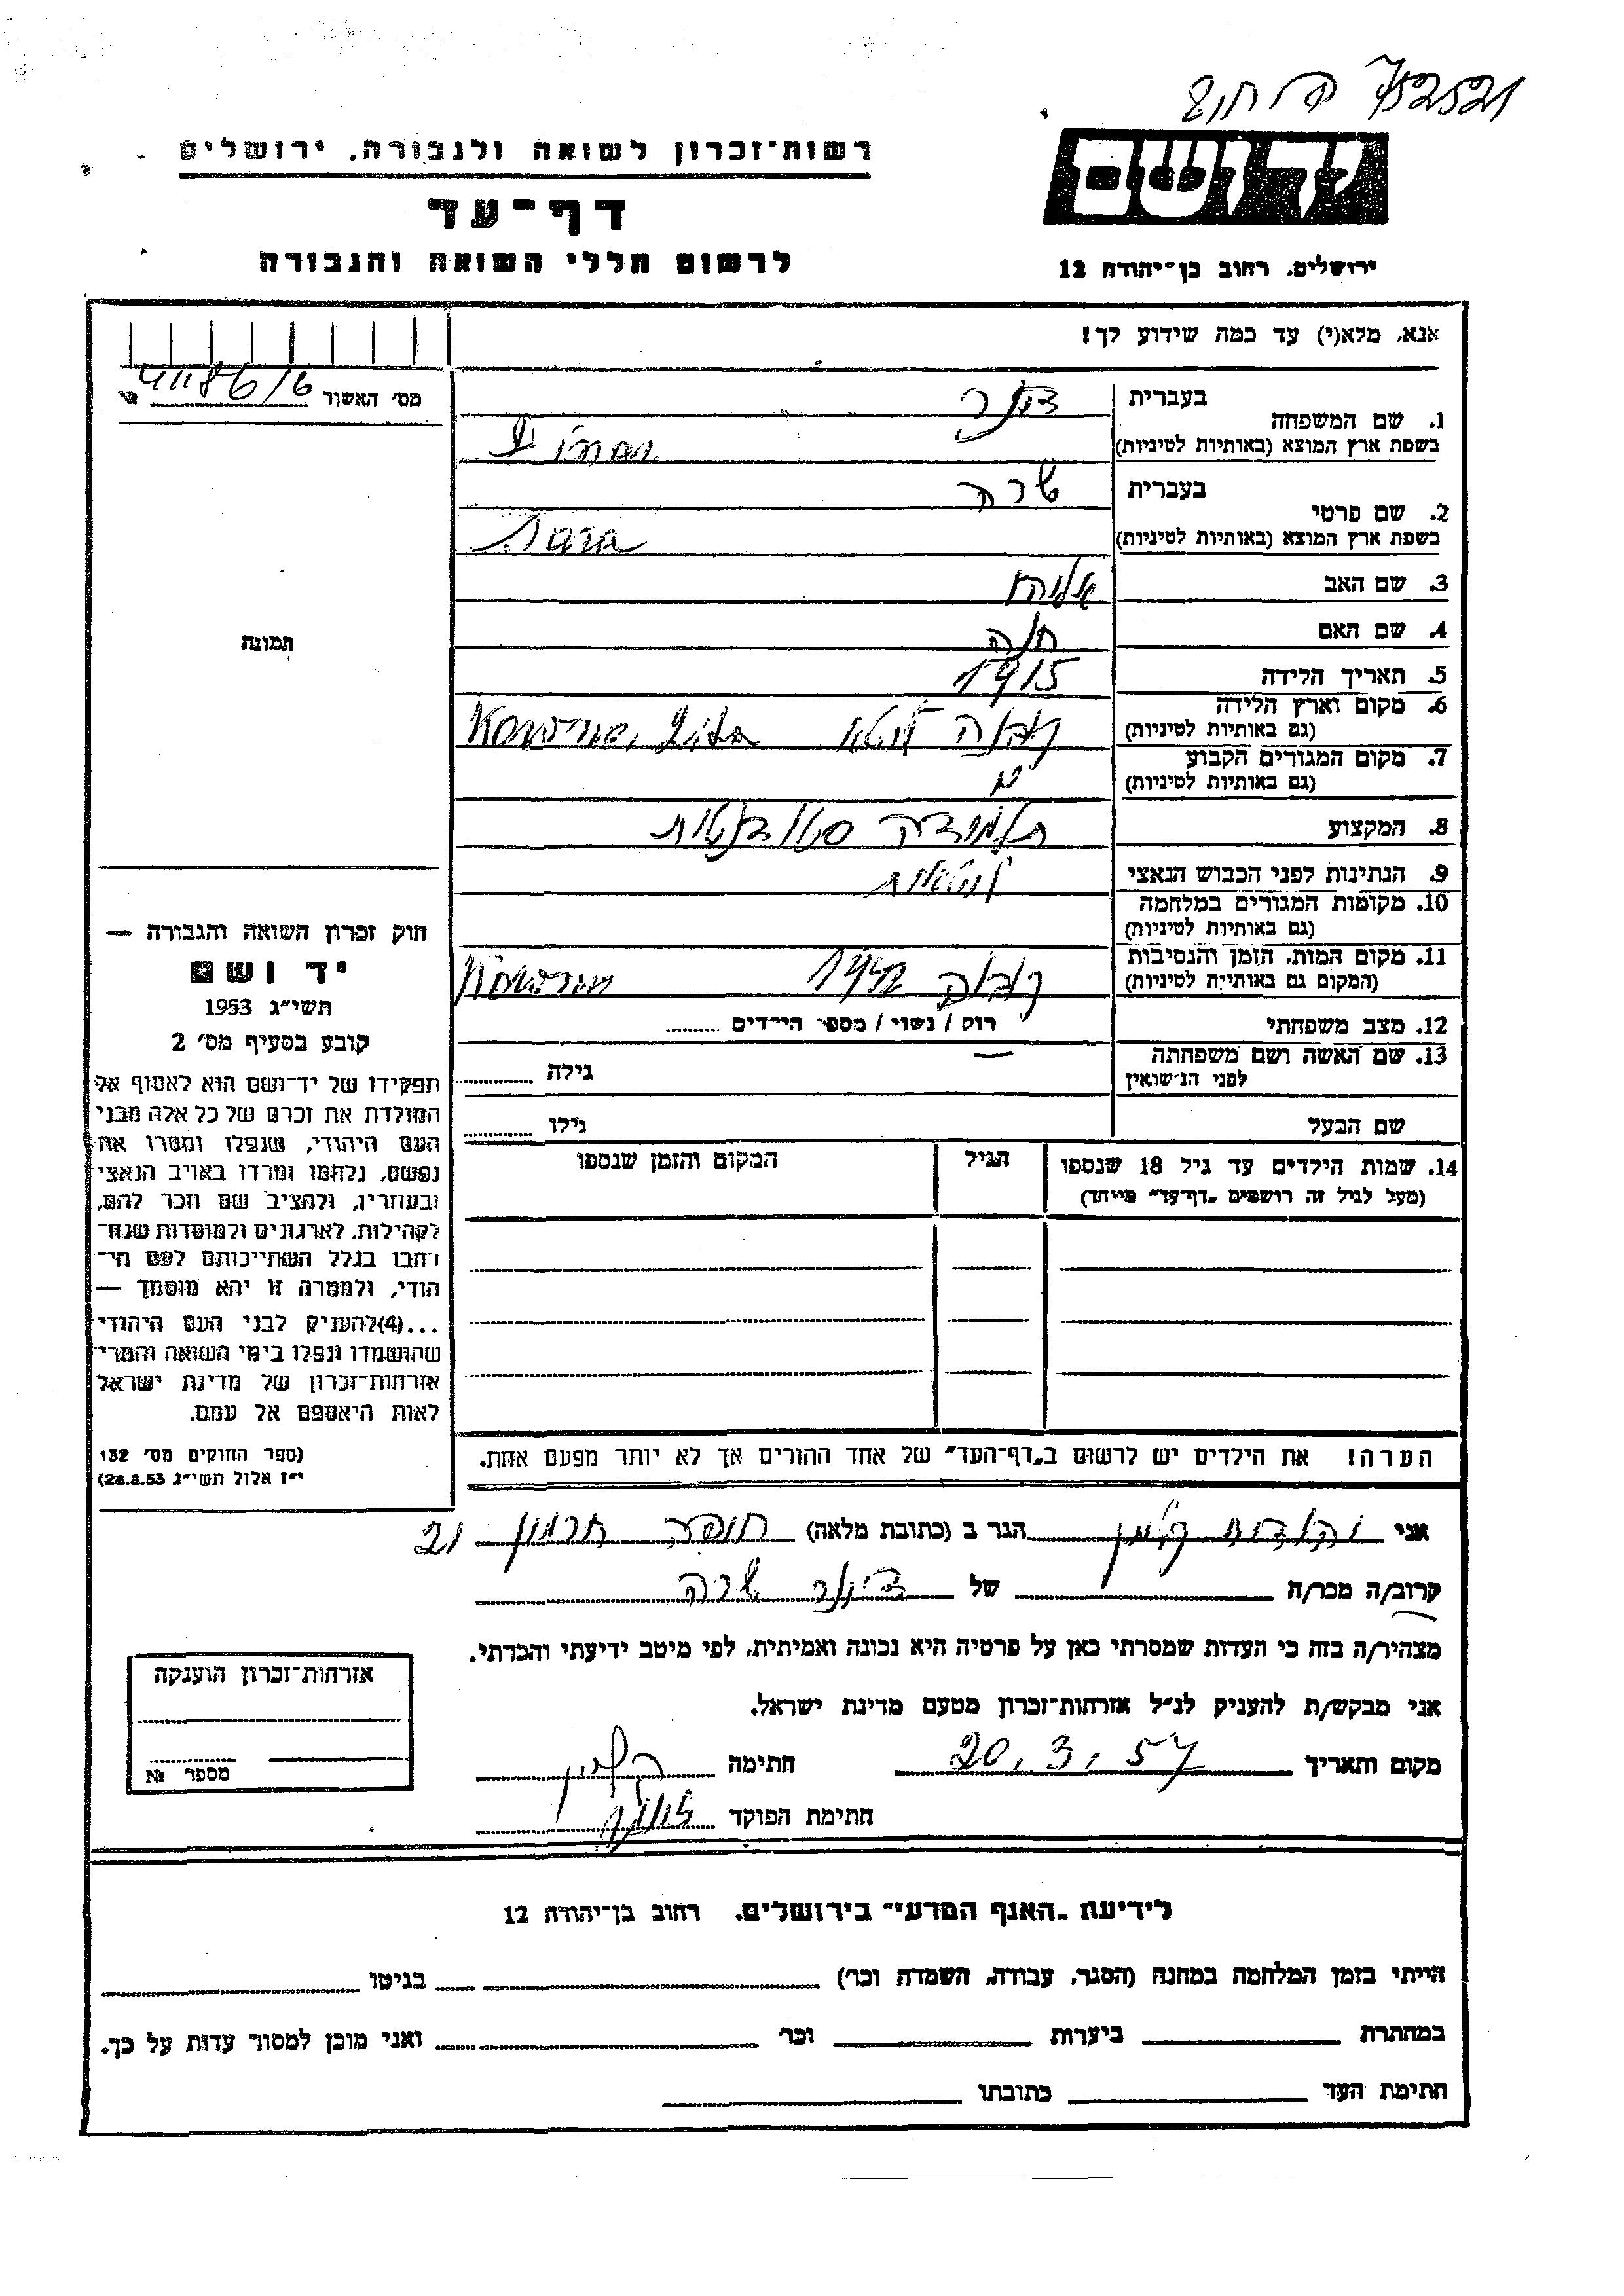 קליחוב 752521
רשות־זכרון לשואה ולגבורה, ירושלים
דף־עד
לרשום חללי השואה והגבורה
יד ושם
ירושלים, רחוב בן־יהודה 12
אנא, מלא(י) עד כמה שידוע לך!
מס׳ האשור № 41186/6
1. שם המשפחה
בעברית
בשפת ארץ המוצא (באותיות לטיניות)
2. שם פרטי
בעברית שרה
בשפת ארץ המוצא (באותיות לטיניות) Sara
3. שם האב
4. שם האם חנה
5. תאריך הלידה 1915
6. מקום וארץ הלידה קובנה ליטא Kowno, Lita
(גם באותיות לטיניות)
7. מקום המגורים הקבוע
(גם באותיות לטיניות)
8. המקצוע תלמידה סטודנטית
9. הנתינות לפני הכבוש הנאצי ליטאית
10. מקומות המגורים במלחמה
(גם באותיות לטיניות)
11. מקום המות, הזמן והנסיבות קובנה 1941 Kowno
(המקום גם באותיות לטיניות)
12. מצב משפחתי רוק / נשוי / מספר הילדים
13. שם האשה ושם משפחתה
לפני הנישואין
גילה
שם הבעל גילו
14. שמות הילדים עד גיל 18 שנספו הגיל המקום והזמן שנספו
(מעל לגיל זה רושמים „דף־עד" מיוחד)
תמונה
חוק זכרון השואה והגבורה —
יד ושם
תשי״ג 1953
קובע בסעיף מס׳ 2
תפקידו של יד־ושם הוא לאסוף אל
המולדת את זכרם של כל אלה מבני
העם היהודי, שנפלו ומסרו את
נפשם, נלחמו ומרדו באויב הנאצי
ובעוזריו, ולהציב שם וזכר להם,
לקהילות, לארגונים ולמוסדות שנח־
רבו בגלל השתייכותם לעם הי־
הודי, ולמטרה זו יהא מוסמך —
...(4)להעניק לבני העם היהודי
שהושמדו ונפלו בימי השואה והמרי
אזרחות־זכרון של מדינת ישראל
לאות היאספם אל עמם.
(ספר החוקים מס׳ 132
י״ז אלול תשי״ג 28.8.53)
הערה! את הילדים יש לרשום ב„דף־העד" של אחד ההורים אך לא יותר מפעם אחת.
אני הגר ב (כתובת מלאה) חיפה חרמון 21
קרוב/ה מכר/ה של שרה
מצהיר/ה בזה כי העדות שמסרתי כאן על פרטיה היא נכונה ואמיתית, לפי מיטב ידיעתי והכרתי.
אני מבקש/ת להעניק לנ״ל אזרחות־זכרון מטעם מדינת ישראל.
מקום ותאריך 20.3.57 חתימה
חתימת הפוקד
אזרחות־זכרון הוענקה
מספר №
לידיעת „האגף המדעי" בירושלים, רחוב בן־יהודה 12
הייתי בזמן המלחמה במחנה (הסגר, עבודה, השמדה וכו׳) בגיטו
במחתרת ביערות וכו׳ ואני מוכן למסור עדות על כך.
חתימת העד כתובתו